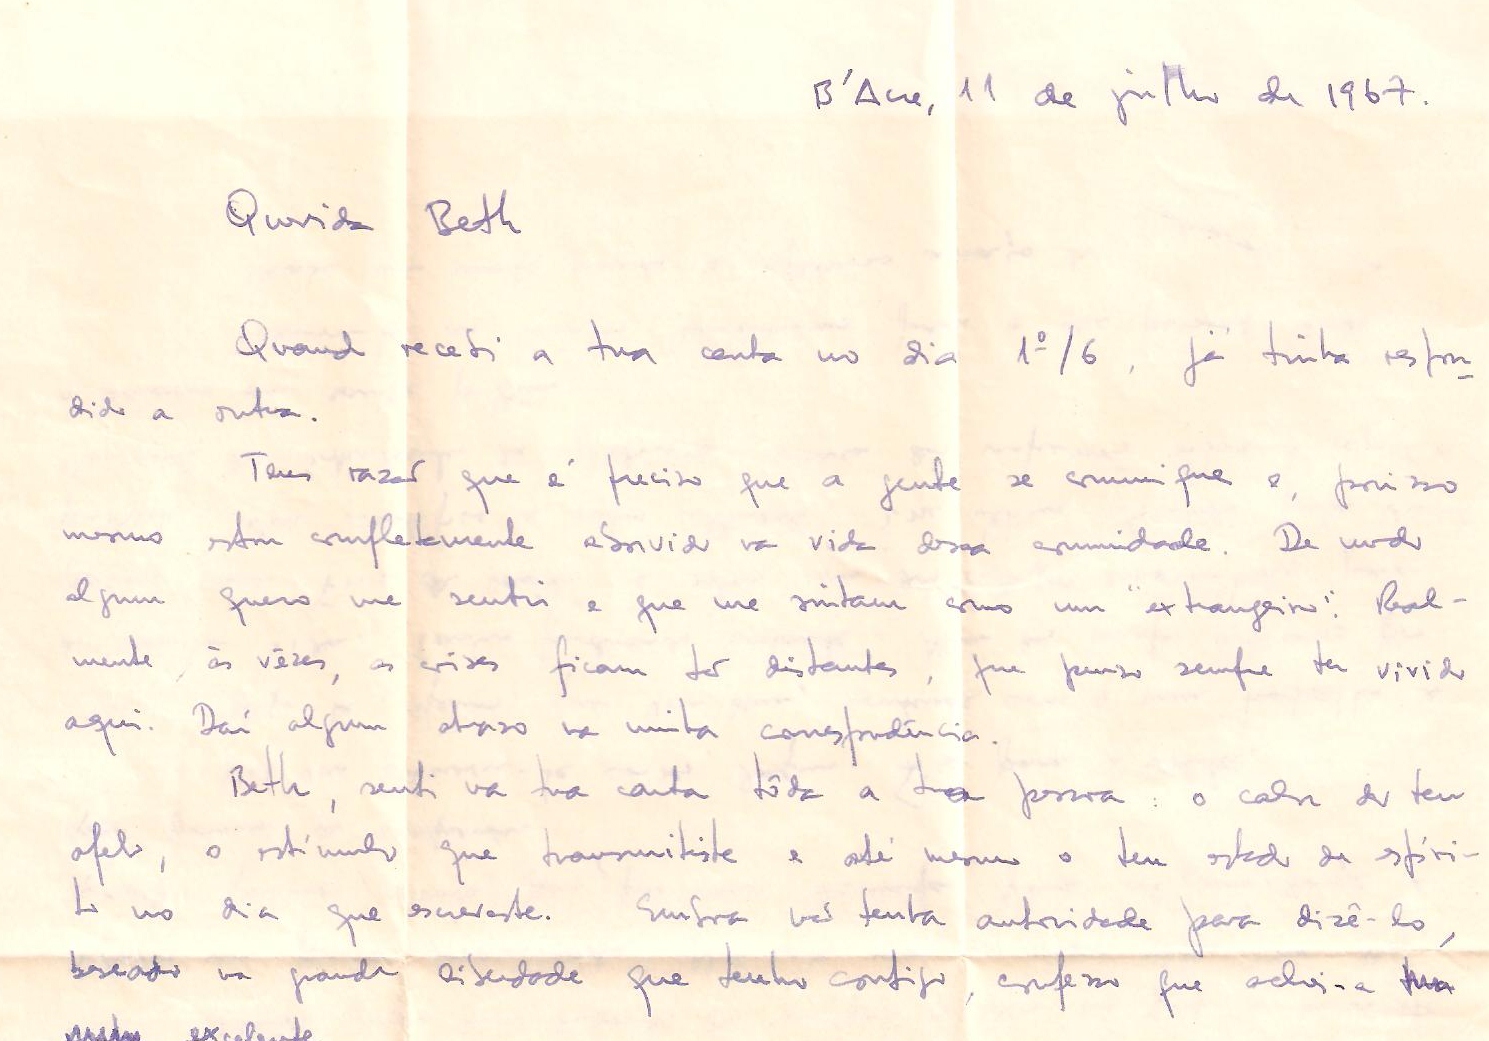 B'Acre, 11 de julho de 1967.
Querida Beth
Quando recebi a tua carta no dia 1º/6, já tinha respon-
dido a outra.
Tens razão que é preciso que a gente se comunique e, por isso
mesmo estou completamente absorvido na vida dessa comunidade. De modo
algum quero me sentir e que me sintam como um "extrangeiro". Real-
mente, às vêzes, as coisas ficam tão distantes, que penso sempre ter vivido
aqui. Daí algum atraso na minha correspondência.
Beth, senti na tua carta tôda a tua pessoa: o calor do teu
afeto, o estímulo que transmitiste e até mesmo o teu estado de espíri-
to no dia que escreveste. Embora não tenha autoridade para dizê-lo,
baseado na grande liberdade que tenho contigo, confesso que achei-a
excelente